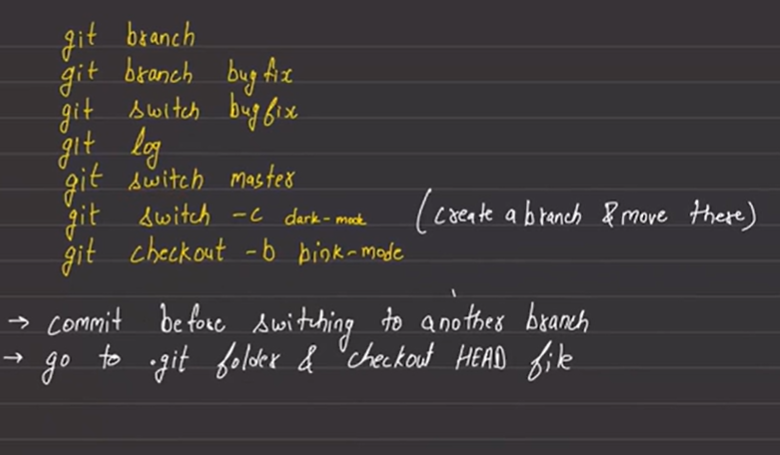 git branch
git branch bugfix
git switch bugfix
git log
git switch master
git switch -c dark-mode (create a branch & move there)
git checkout -b bink-mode
→ commit before switching to another branch
→ go to .git folder & checkout HEAD file